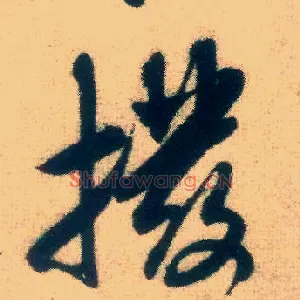 撥
Shufawang.CN